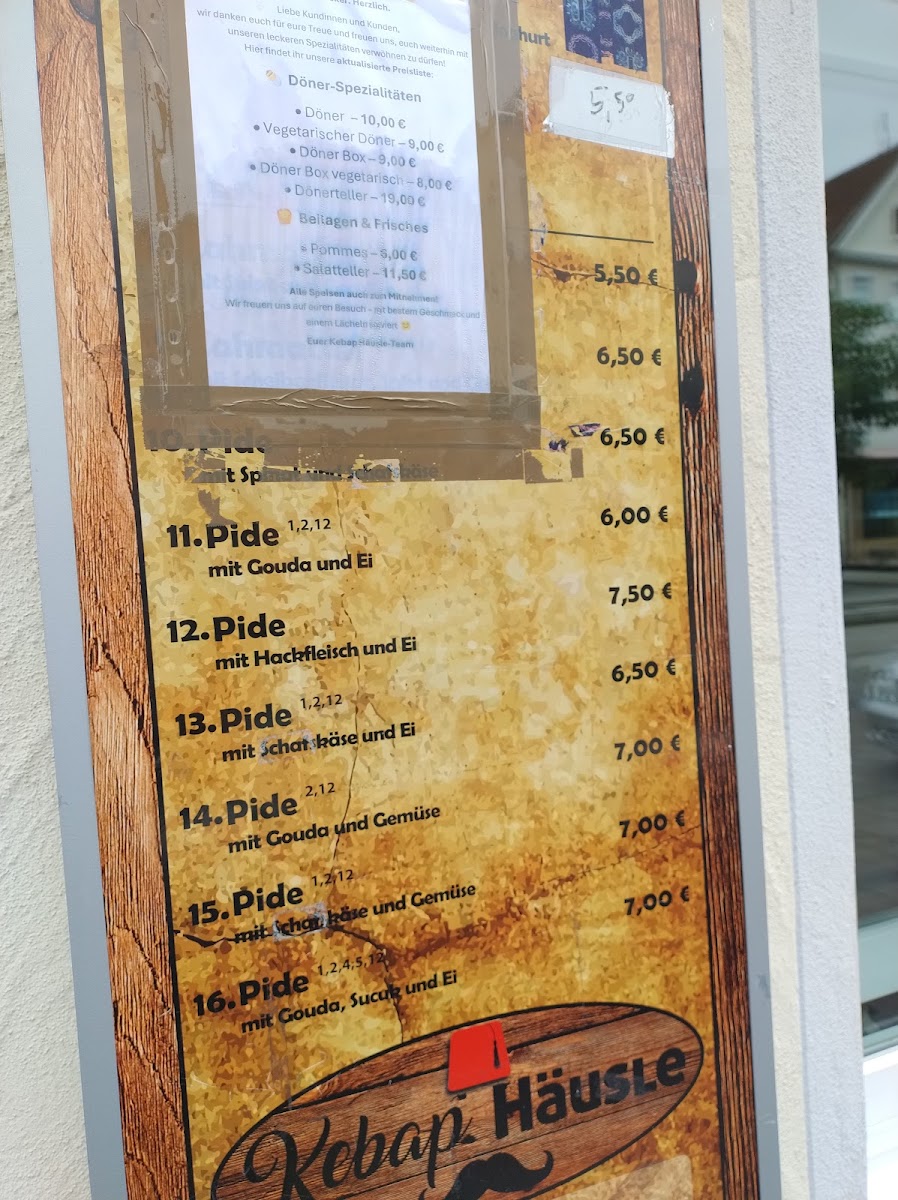 Herzlich.
Liebe Kundinnen und Kunden,
wir danken euch für eure Treue und freuen uns, euch weiterhin mit
unseren leckeren Spezialitäten verwöhnen zu dürfen!
Hier findet ihr unsere aktualisierte Preisliste:
Döner-Spezialitäten
• Döner – 10,00 €
• Vegetarischer Döner – 9,00 €
• Döner Box – 9,00 €
• Döner Box vegetarisch – 8,00 €
• Dönerteller – 19,00 €
Beilagen & Frisches
• Pommes – 8,00 €
• Salatteller – 11,50 €
Alle Speisen auch zum Mitnehmen!
Wir freuen uns auf euren Besuch – mit bestem Geschmack und
einem Lächeln serviert 😊
Euer Kebap Häusle-Team
5,50
5,50 €
6,50 €
10. Pide 6,50 €
mit Spinat und Schafskäse
11. Pide 1,2,12 6,00 €
mit Gouda und Ei
12. Pide 7,50 €
mit Hackfleisch und Ei
13. Pide 1,2,12 6,50 €
mit Schafskäse und Ei
14. Pide 2,12 7,00 €
mit Gouda und Gemüse
15. Pide 1,2,12 7,00 €
mit Schafskäse und Gemüse
16. Pide 1,2,4,5,12 7,00 €
mit Gouda, Sucuk und Ei
Kebap Häusle